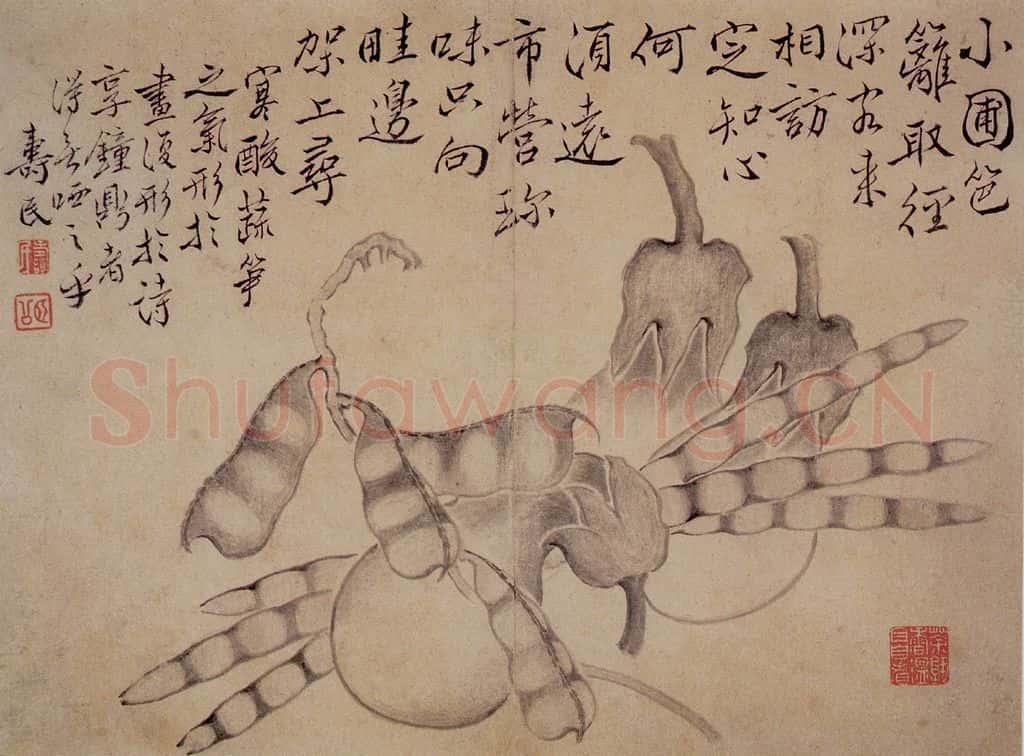 小圃笆
籬取徑
深客来
相訪
定知心
何
須遠
市營珎
味只向
畦邊
架上尋
寒酸蔬筍
之氣形於
畫復形於詩
享鐘鼎者
得无哂之乎
壽民
Shufawang.CN